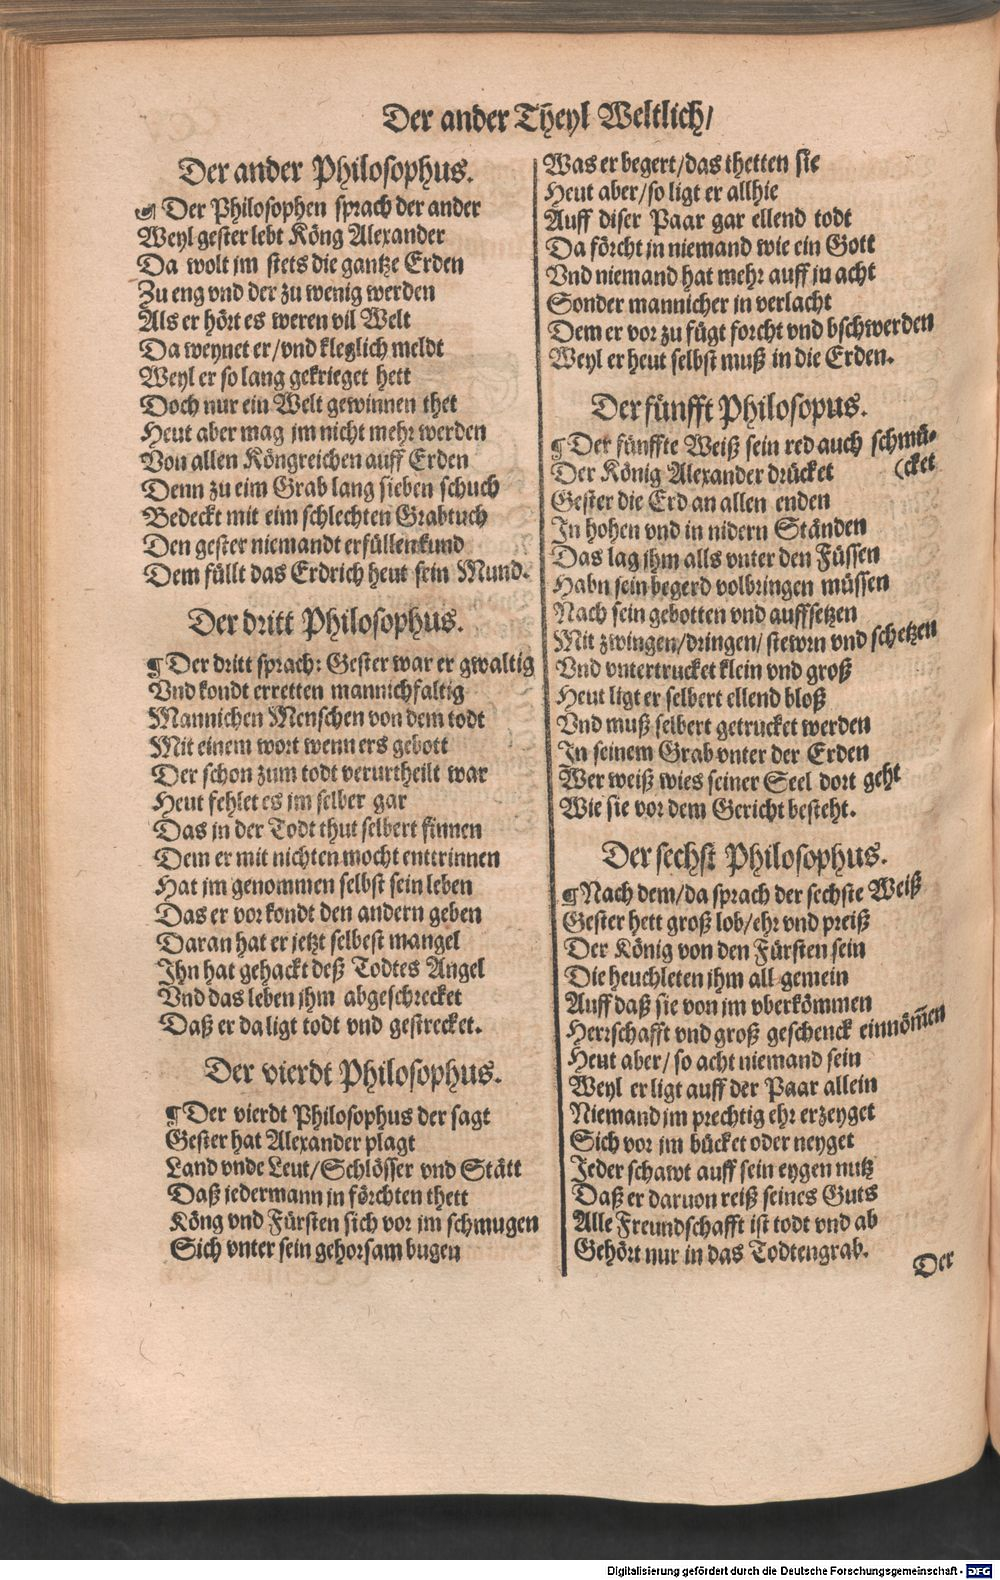 Der ander Theyl Weltlich/
Der ander Philosophus.
Der Philosophen sprach der ander
Weyl gester lebt Köng Alexander
Da wolt jm stets die gantze Erden
Zu eng vnd der zu wenig werden
Als er hört es weren vil Welt
Da weynet er/vnd kleglich meldt
Weyl er so lang gekrieget hett
Doch nur ein Welt gewinnen thet
Heut aber mag jm nicht mehr werden
Von allen Köngreichen auff Erden
Denn zu eim Grab lang sieben schuch
Bedeckt mit eim schlechten Grabtuch
Den gester niemandt erfüllen kund
Dem füllt das Erdrich heut sein Mund.
Der dritt Philosophus.
¶ Der dritt sprach: Gester war er gwaltig
Vnd kondt erretten mannichfaltig
Mannichen Menschen von dem todt
Mit einem wort wenn ers gebott
Der schon zum todt verurtheilt war
Heut fehlet es jm selber gar
Das in der Todt thut selbert finnen
Dem er mit nichten mocht enttrinnen
Hat jm genommen selbst sein leben
Das er vor kondt den andern geben
Daran hat er jetzt selbest mangel
Jhn hat gehackt deß Todtes Angel
Vnd das leben jhm abgeschrecket
Daß er da ligt todt vnd gestrecket.
Der vierdt Philosophus.
¶ Der vierdt Philosophus der sagt
Gester hat Alexander plagt
Land vnde Leut/Schlösser vnd Stätt
Daß jedermann jn förchten thett
Köng vnd Fürsten sich vor jm schmugen
Sich vnter sein gehorsam bugen
Was er begert/das thetten sie
Heut aber/so ligt er allhie
Auff diser Paar gar ellend todt
Da förcht jn niemand wie ein Gott
Vnd niemand hat mehr auff jn acht
Sonder mannicher jn verlacht
Dem er vor zu fügt forcht vnd bschwerden
Weyl er heut selbst muß in die Erden.
Der fünfft Philosopus.
¶ Der fünffte Weiß sein red auch schmü-
Der König Alexander drücket (cket
Gester die Erd an allen enden
In hohen vnd in nidern Ständen
Das lag jhm alls vnter den Füssen
Habn sein begerd volbringen müssen
Nach sein gebotten vnd auffsetzen
Mit zwingen/dringen/stewrn vnd schetzen
Vnd vntertrucket klein vnd groß
Heut ligt er selbert ellend bloß
Vnd muß selbert getrucket werden
In seinem Grab vnter der Erden
Wer weiß wies seiner Seel dort geht
Wie sie vor dem Gericht besteht.
Der sechst Philosophus.
¶ Nach dem/da sprach der sechste Weiß
Gester hett groß lob/ehr vnd preiß
Der König von den Fürsten sein
Die heuchleten jhm all gemein
Auff daß sie von jm vberkömmen
Herrschafft vnd groß geschenck einnöm̄en
Heut aber/ so acht niemand sein
Weyl er ligt auff der Paar allein
Niemand jm prechtig ehr erzeyget
Sich vor jm bücket oder neyget
Jeder schawt auff sein eygen nutz
Daß er daruon reiß seines Guts
Alle Freundschafft ist todt vnd ab
Gehört nur in das Todtengrab.
Der
Digitalisierung gefördert durch die Deutsche Forschungsgemeinschaft - DFG